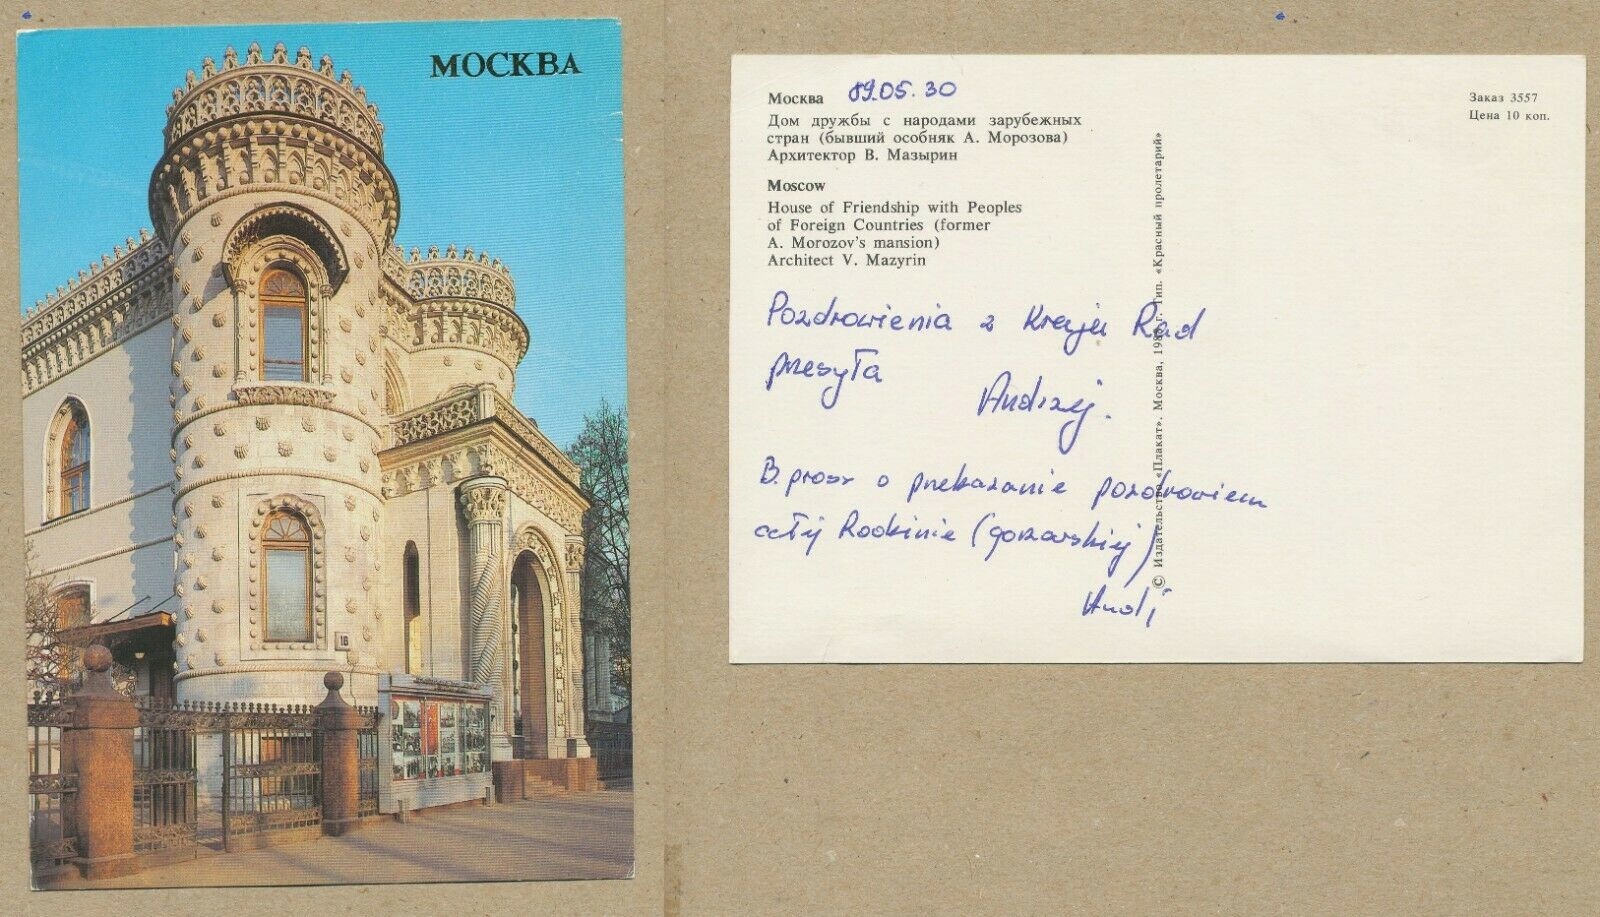 МОСКВА
16
Москва 89.05.30
Дом дружбы с народами зарубежных
стран (бывший особняк А. Морозова)
Архитектор В. Мазырин
Moscow
House of Friendship with Peoples
of Foreign Countries (former
A. Morozov's mansion)
Architect V. Mazyrin
Pozdrowienia z Kraju Rad
przesyła
Andrzej.
B. prosz o przekazanie pozdrowień
całej Rodzinie (gorzowskiej)
Andj
© Издательство «Плакат». Москва, г. Тип. «Красный пролетарий»
Заказ 3557
Цена 10 коп.